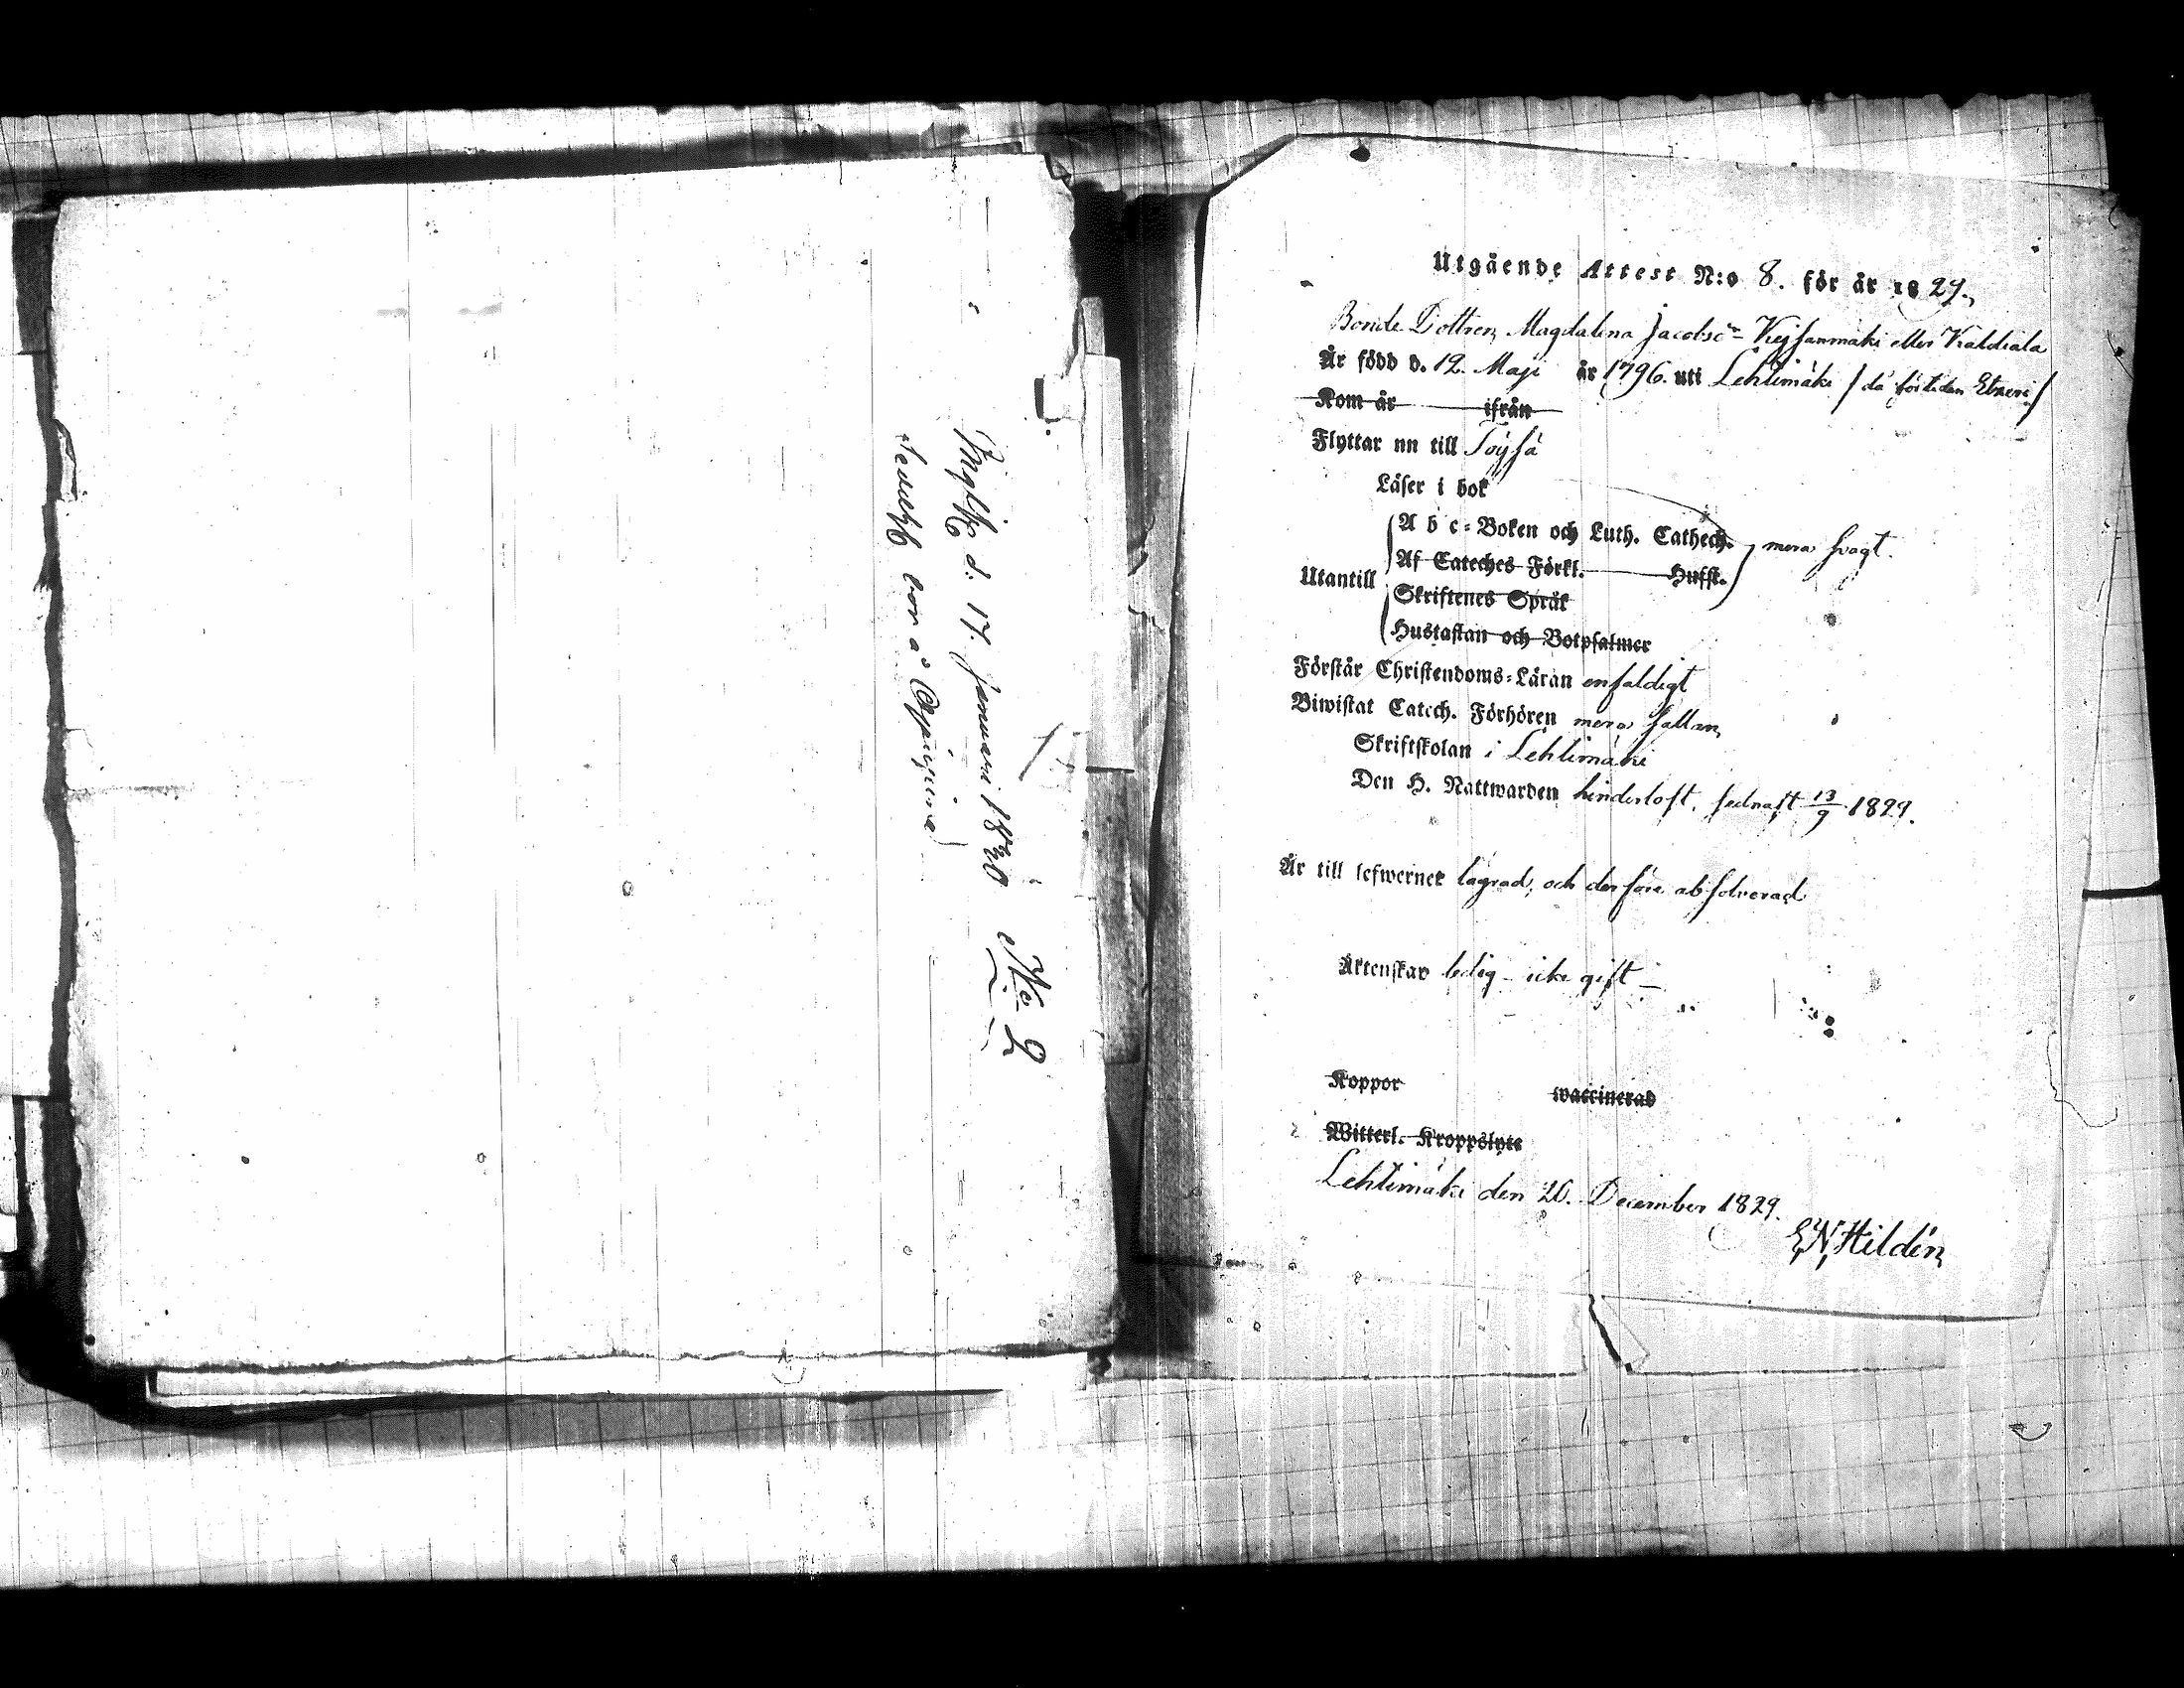 No 2
d. 17. Januari 1830
bor å
Utgående Attest N:o 8. för år 1829.
Bonde Dottren Magdalena Jacobsdr Kejsanmäki eller Kaldiala
Är född d. 12. Maji år 1796. uti Lehtimäki / då förtiden Etseri /
Kom år ifrån
Flyttar nu till Töysä
Läser i bok
A b c-Boken och Luth. Cathech. mera svagt.
Af Cateches Förkl. Hufst.
Utantill
Skriftenes Språk
Hustaflan och Botpsalmer
Förstår Christendoms-Läran enfaldigt
Biwistat Catech. Förhören mera sällan
Skriftskolan i Lehtimäki
Den H. Nattwarden hinderlöst, sednast 13/9 1829.
Är till lefwernet lägrad, och derföre absolverad
Äktenskap ledig - icke gift -
Koppor waccinerad
Witterl. Kroppslyte
Lehtimäki den 20. December 1829.
EN Hildén